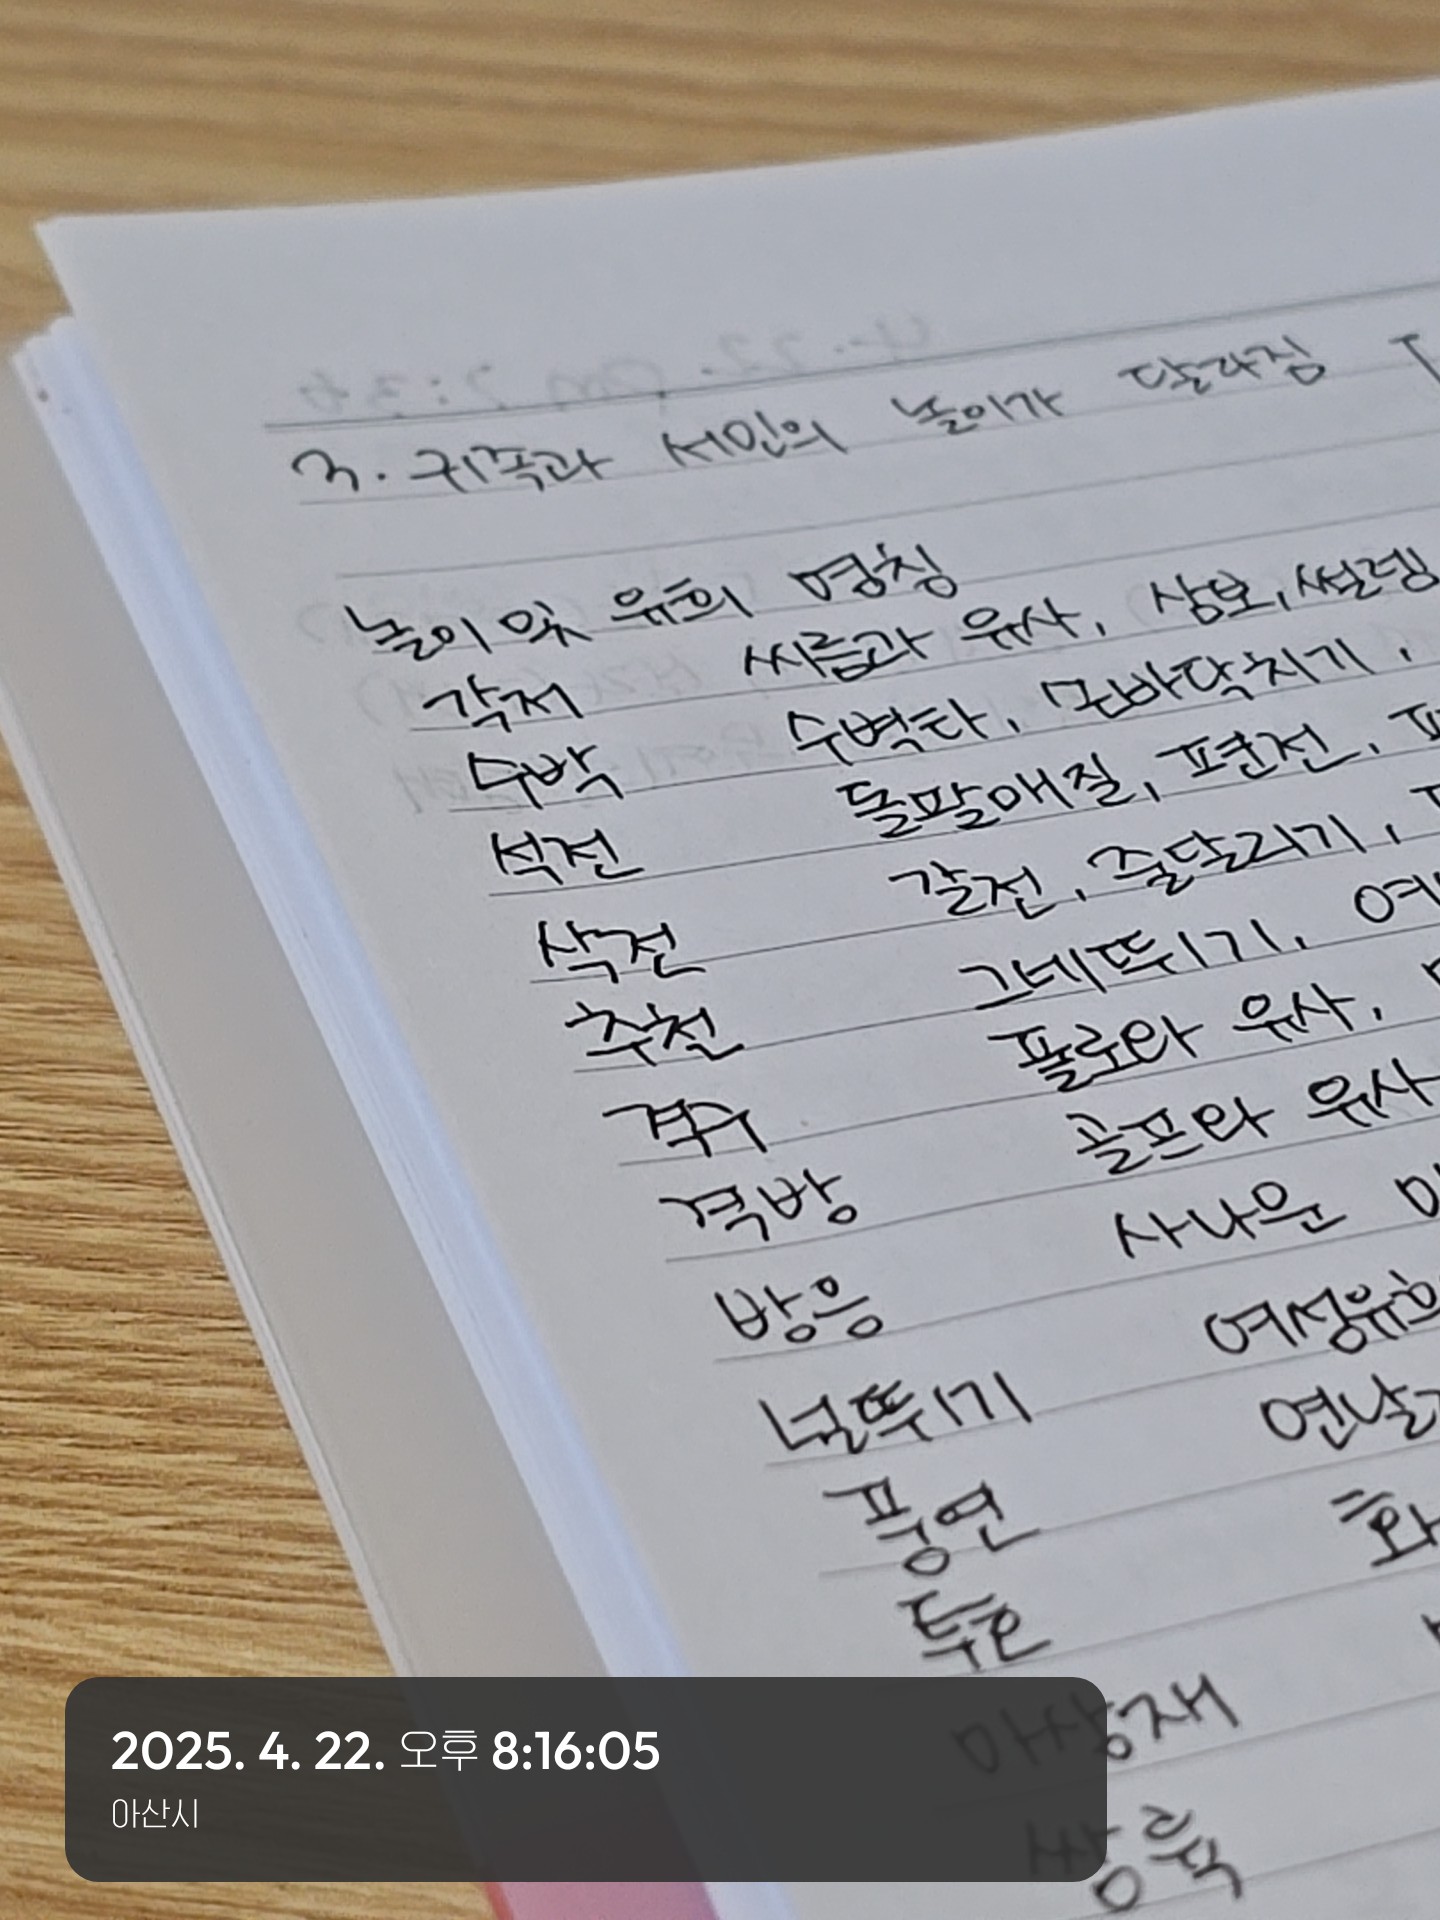 3. 귀족과 서민의 놀이가 달라짐
놀이 및 유희 명칭
각저 씨름과 유사, 상보, 씰렝
수박 수벽타, 맨바닥치기,
석전 돌팔매질, 편전,
삭전 갈전, 줄당리기,
추천 그네뛰기, 여
격구 폴로와 유사,
격방 골프와 유사
방응 사나운
널뛰기 여성유희
풍연 연날
투호 화
아상재
쌍륙
2025. 4. 22. 오후 8:16:05
아산시